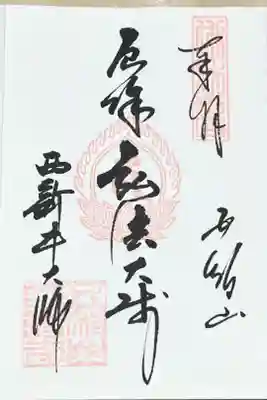 奉拝
五智山
厄除 弘法大師
西新井大師